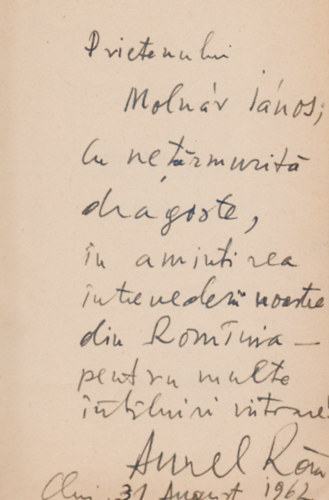 Prietenului
Molnár János,
Cu nețărmurită
dragoste,
în amintirea
întrevederii noastre
din Romînia —
pentru multe
întîlniri viitoare!
Aurel Rău
Cluj, 31 August 1962